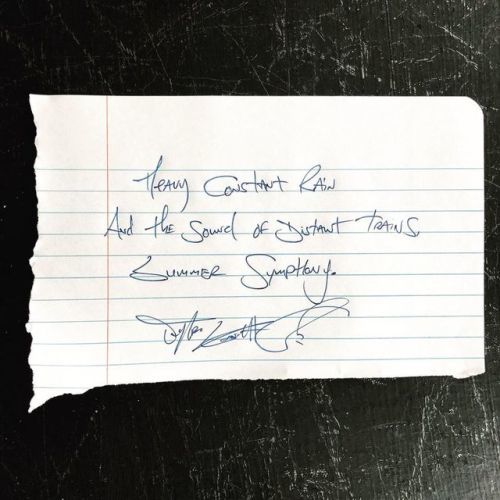 Heavy Constant Rain
And the Sound of Distant Trains,
Summer Symphony.